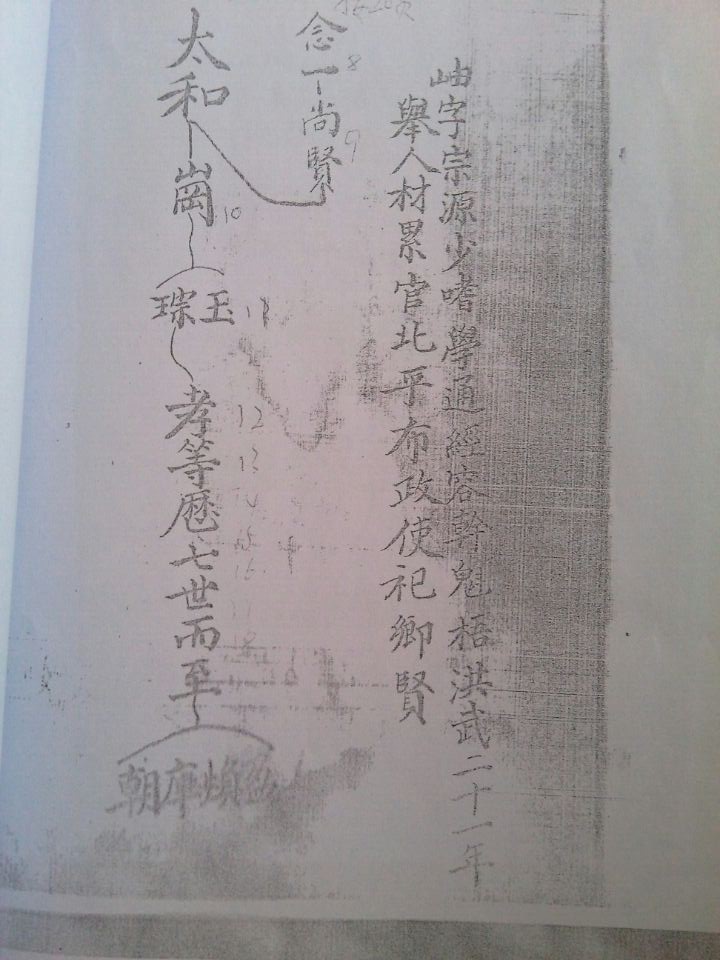 岫字宗源少嗜學通經容幹魁梧洪武二十一年
舉人材累官北平布政使祀鄉賢
念一尚賢
8
9
太和崗
10
琮玉
11
孝等歷七世而至
12
13
14
15
16
17
18
朝